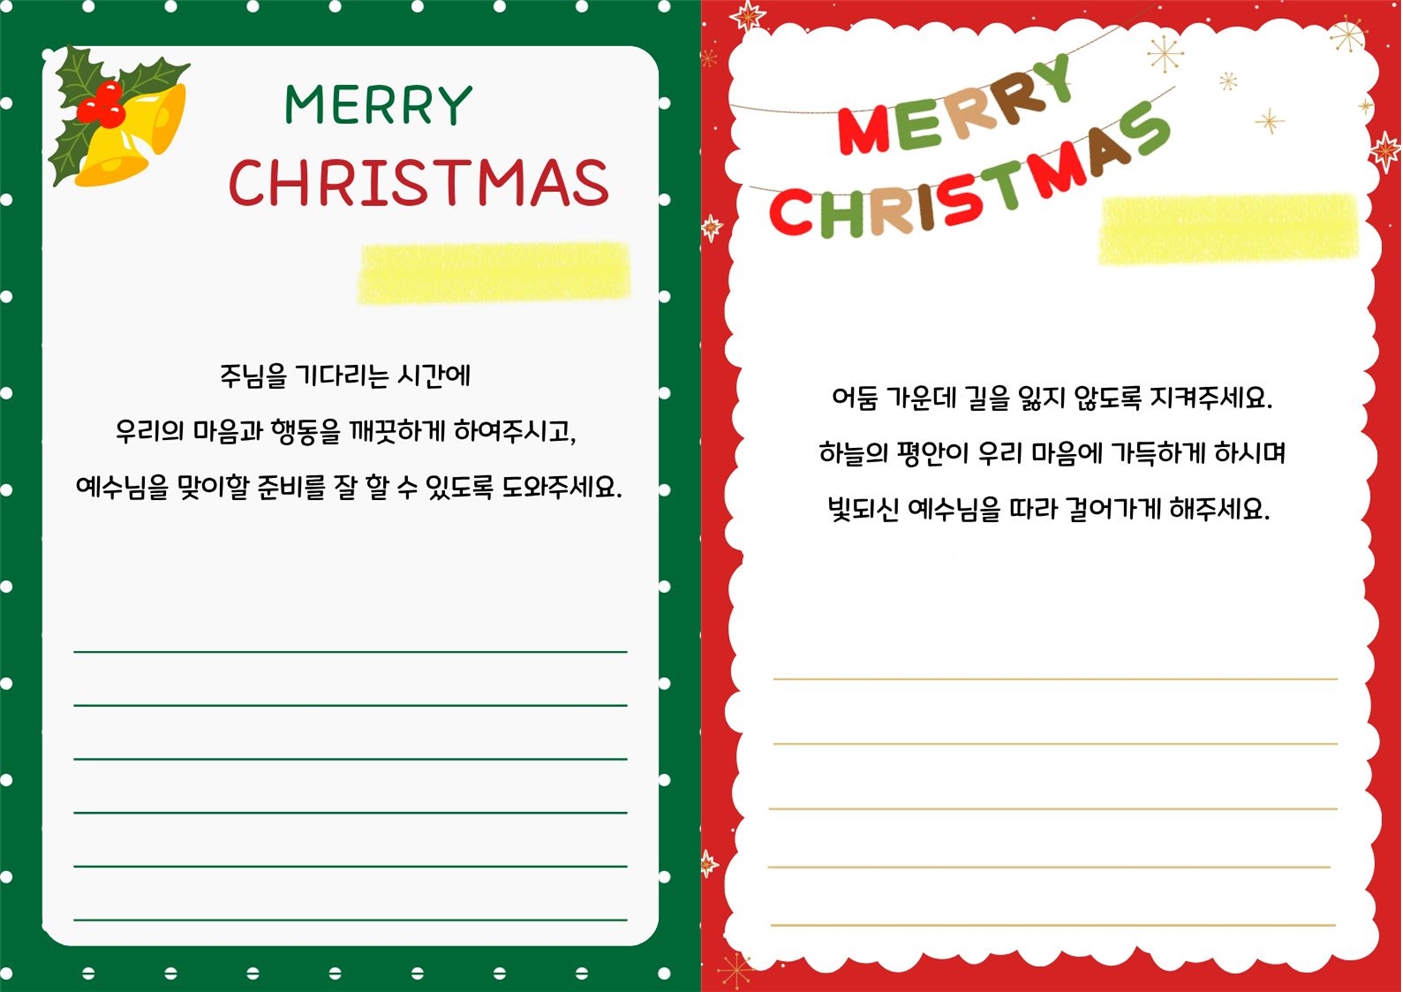 MERRY
CHRISTMAS
주님을 기다리는 시간에
우리의 마음과 행동을 깨끗하게 하여주시고,
예수님을 맞이할 준비를 잘 할 수 있도록 도와주세요.
MERRY
CHRISTMAS
어둠 가운데 길을 잃지 않도록 지켜주세요.
하늘의 평안이 우리 마음에 가득하게 하시며
빛되신 예수님을 따라 걸어가게 해주세요.